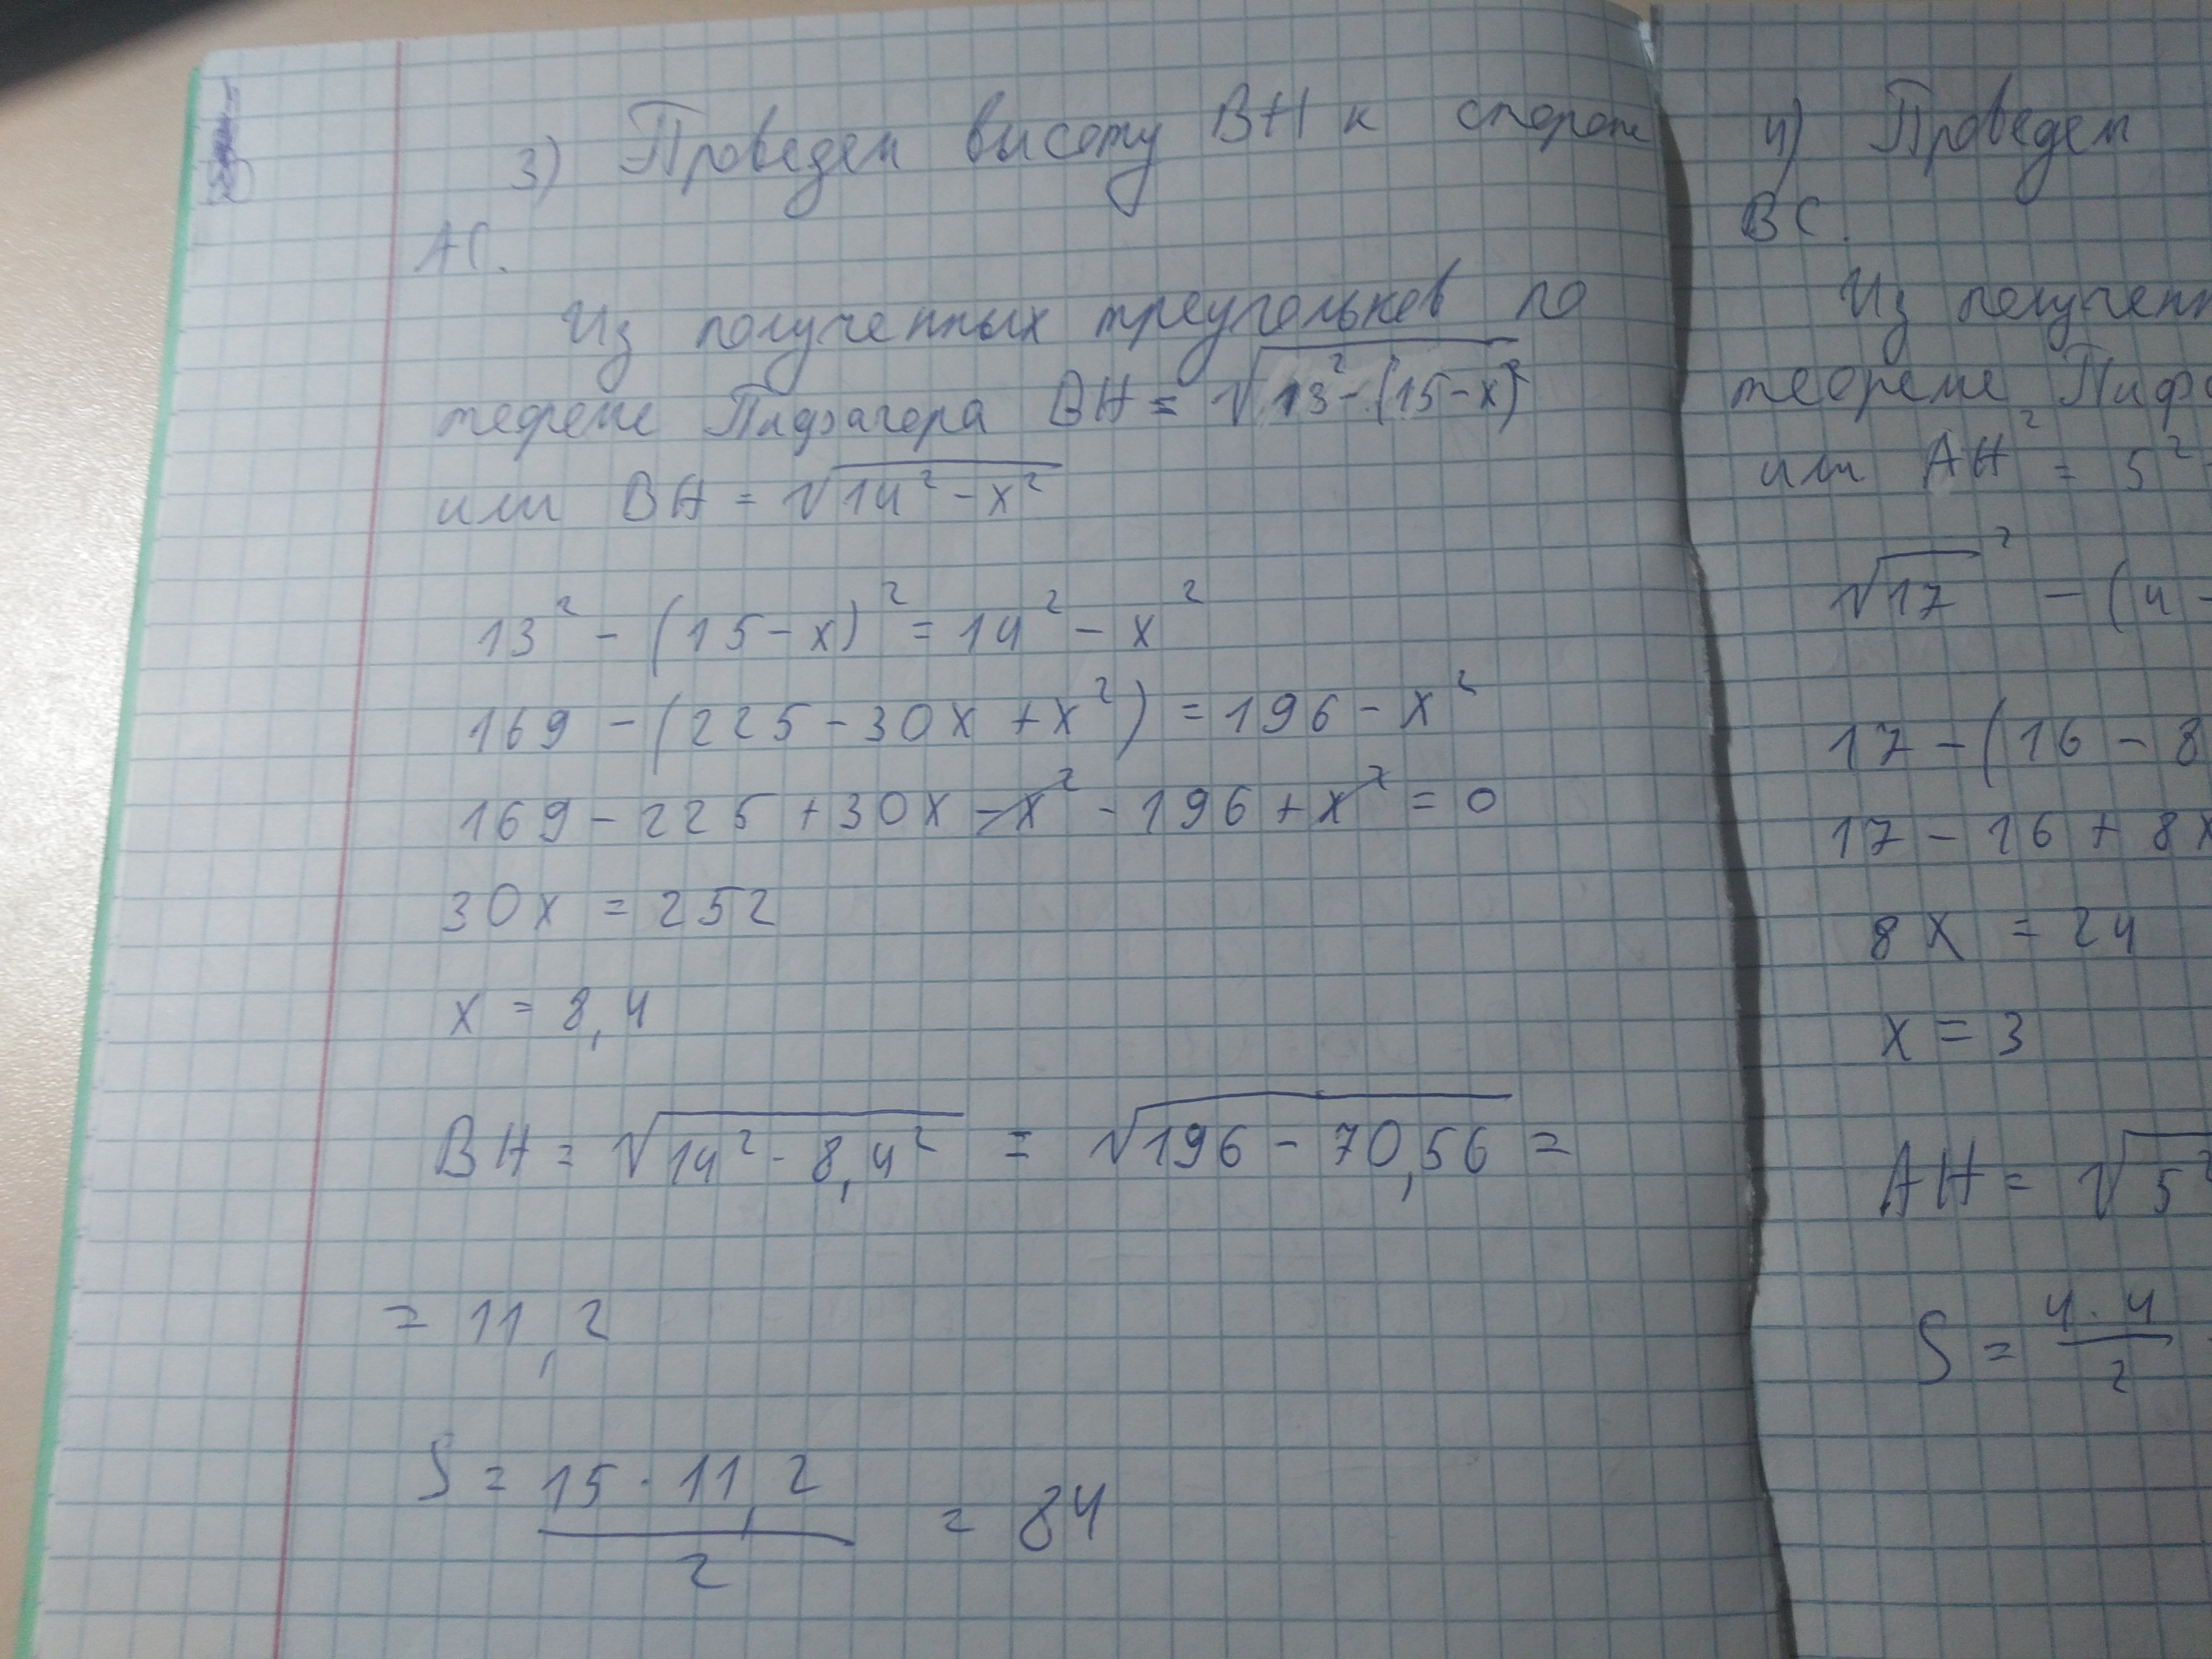 3) Проведем высоту BH к стороне
AC.
Из полученных треугольнков по
теореме Пифагора BH = √(13² - (15 - x)²)
или BH = √(14² - x²)
13² - (15 - x)² = 14² - x²
169 - (225 - 30x + x²) = 196 - x²
169 - 225 + 30x - x² - 196 + x² = 0
30x = 252
x = 8,4
BH = √(14² - 8,4²) = √(196 - 70,56) =
= 11,2
S = (15 · 11,2)/2 = 84
4) Проведем
BC.
Из получен
теореме Пиф
или AH² = 5²
√17² - (4 -
17 - (16 - 8
17 - 16 + 8x
8x = 24
x = 3
AH = √5²
S = (4 · 4)/2